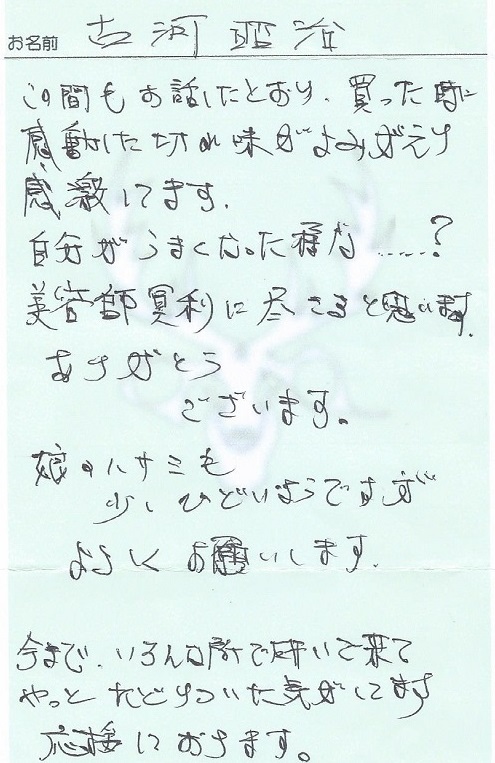 お名前 古河 昭治
この間もお話したとおり、買った時に
感動した切れ味がよみがえり
感激してます。
自分がうまくなった様な……?
美容師冥利に尽きると思います。
ありがとう
ございます。
娘のハサミも
少しひどいようですが
よろしくお願いします。
今まで、いろんな所で研いで来て
やっとたどりついた気がしてます
応援しております。